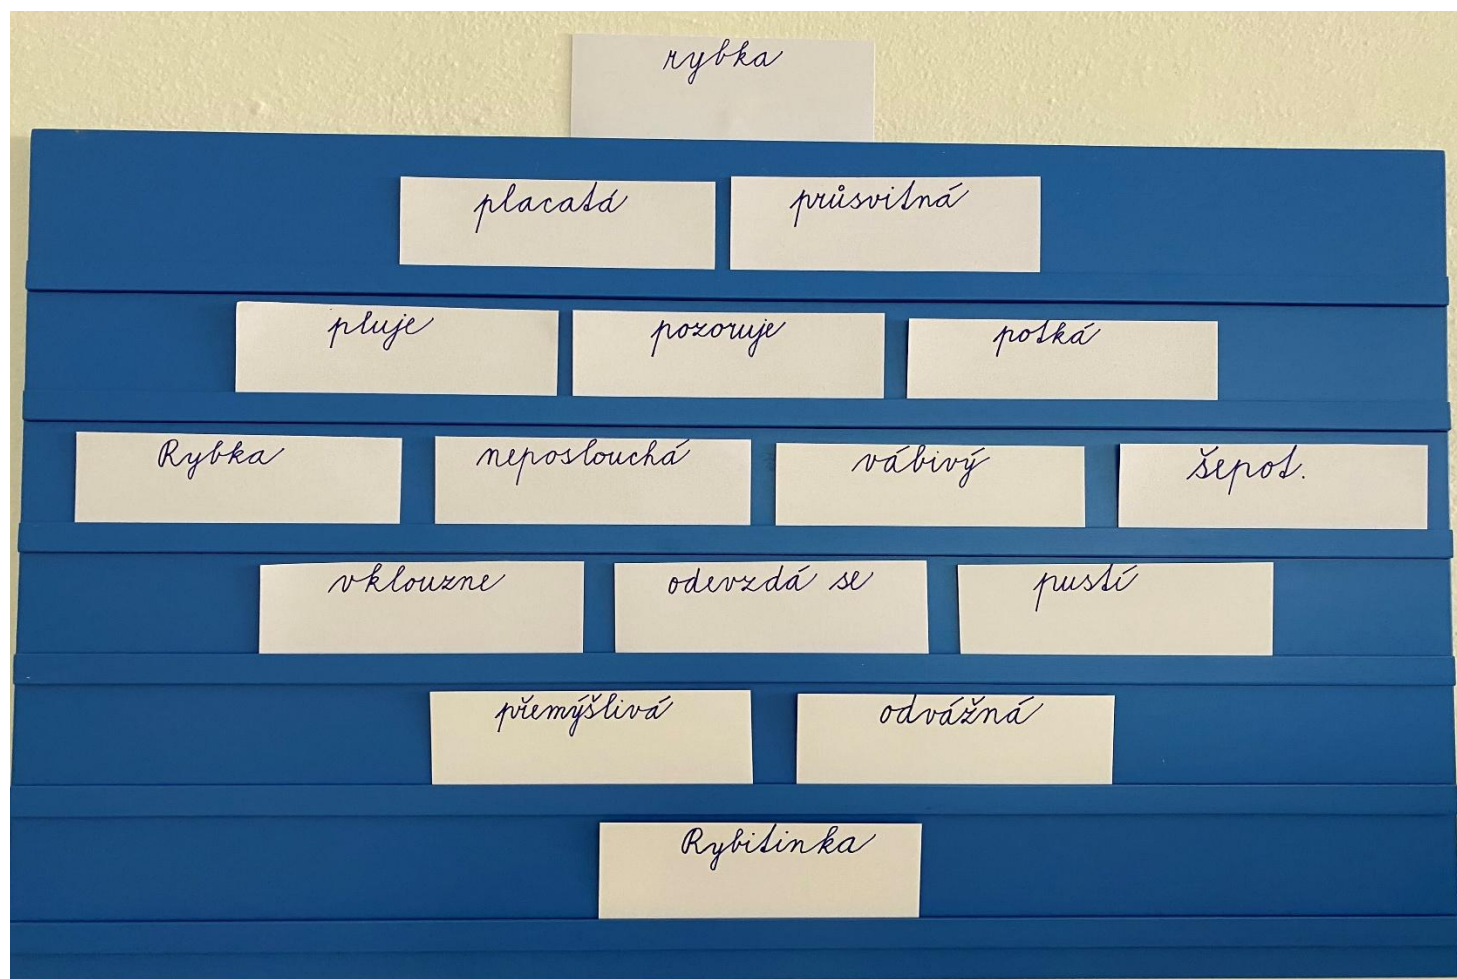 rybka
placatá průsvitná
pluje pozoruje potká
Rybka neposlouchá vábivý šepot.
vklouzne odevzdá se pustí
přemýšlivá odvážná
Rybitinka